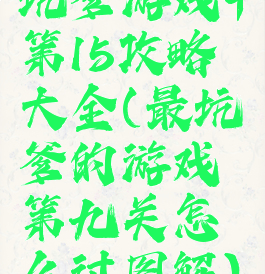 坑爹游戏4
第15攻略
大全(最坑
爹的游戏
第九关怎
么过图解)